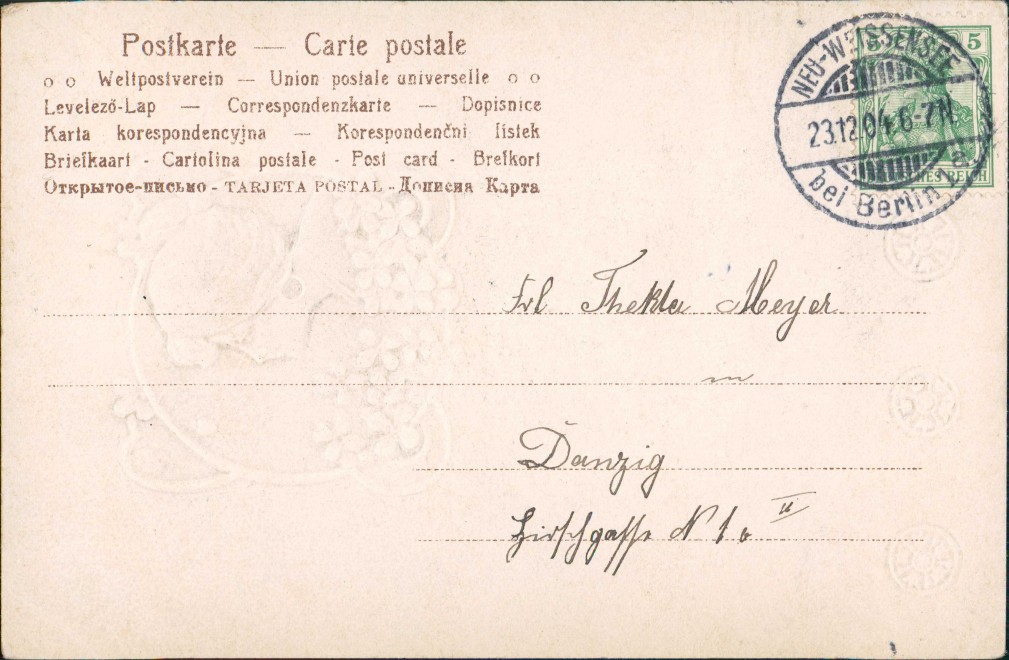 Postkarte — Carte postale
Weltpostverein — Union postale universelle
Levelező-Lap — Correspondenzkarte — Dopisnice
Karta korespondencyjna — Korespondenčni listek
Briefkaart - Cartolina postale - Post card - Brefkort
Открытое-письмо - TARJETA POSTAL - Дописна Карта
NEU-WEISSENSEE
23.12.04. 6-7N.
bei Berlin a.
5
REICH
Frl Thekla Meyer
in
Danzig
Hirschgasse N 1 II